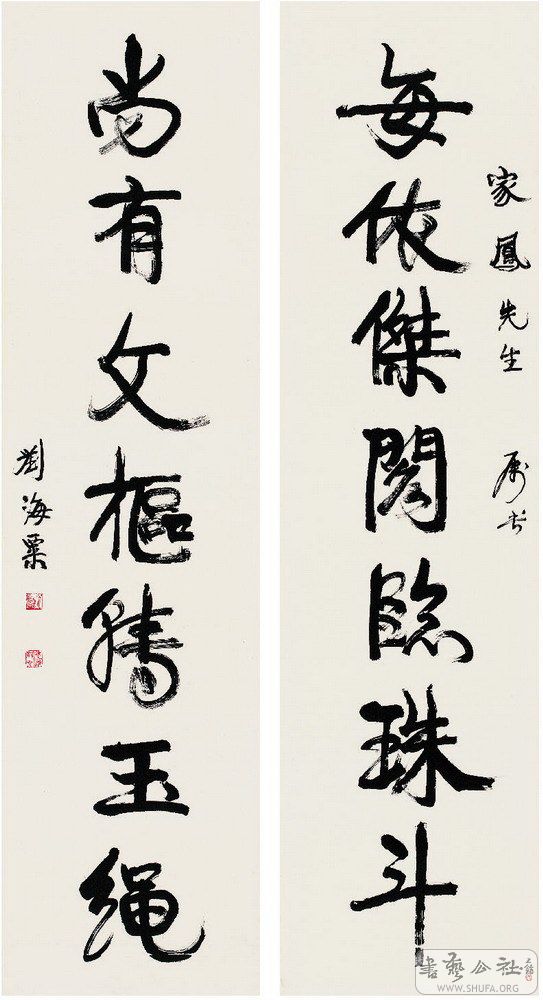 家鳳先生 属书
每依傑閣臨珠斗
尚有文樞玉繩
劉海粟
書藝公社
WWW.SHUFA.ORG